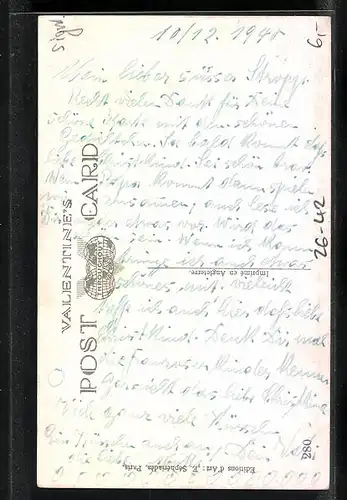 sign.
10/12. 1940
6,-
Mein lieber süsser Stropp!
Recht vielen Dank für Deine
schöne Karte mit dem schönen
Gedichtchen. So bald kommt das
liebe Christkind. Sei schön brav
Papa kommt dann spielen
zusammen, und lese ich
Dir etwas vor. Wird das
sein. Wenn ich komme
bringe ich auch etwas
schönes mit, vielleicht
treffe ich auch hier das liebe
Christkind. Denk Dir mal
die Franzosenkinder kennen
garnicht das liebe Christkind
Dich ganz viele Küsschen
Ein Küsschen auch an
die liebe Mutti
VALENTINE'S
POST CARD
Imprimé en Angleterre.
26-42
Editions d'Art: E. Séphériadès, Paris.
280